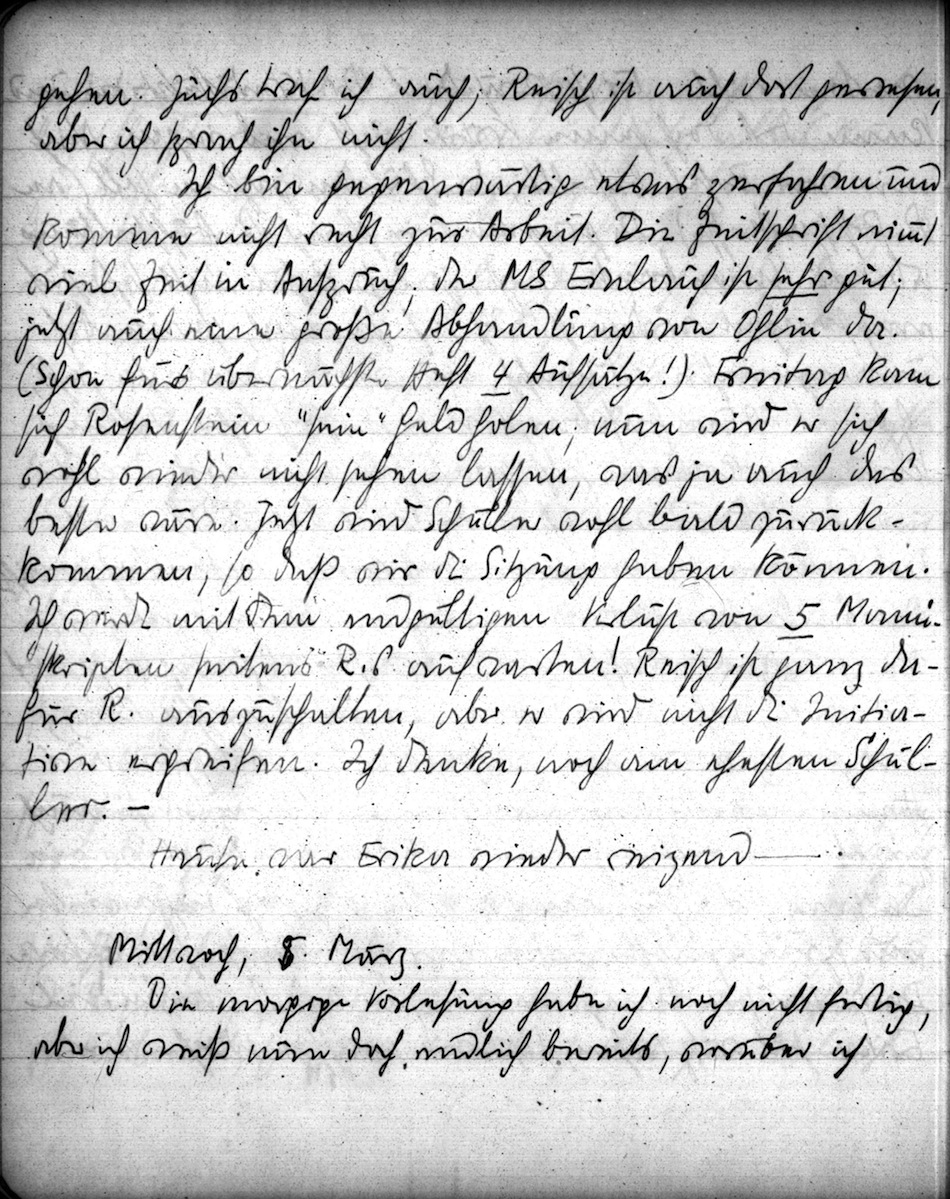 gehen. Fuchs traf ich auch, Reisch ist auch dort gewesen,
aber ich sprach ihn nicht.
Ich bin gegenwärtig etwas zerfahren und
komme nicht recht zur Arbeit. Die Zeitschrift nimmt
viel Zeit in Anspruch, der MS Einlauf ist sehr gut;
jetzt auch eine große Abhandlung von Ohlin da.
(Schon fürs übernächste Heft 4 Aufsätze!). Freitag kam
sich Rosenstein "sein" Geld holen; nun wird er sich
wohl wieder nicht sehen lassen, was ja auch das
beste wäre. Jetzt wird Schüller wohl bald zurück-
kommen, so daß wir die Sitzung haben können.
Ich werde mit dem endgültigen Verlust von 5 Manu-
skripten seitens R.s aufwarten! Reisch ist ganz da-
für R. auszuschalten, aber er wird nicht die Initia-
tive ergreifen. Ich denke, noch am ehesten Schül-
ler. —
Heute war Erika wieder reizend —— .
Mittwoch, 5. März.
Die morgige Vorlesung habe ich noch nicht fertig,
aber ich weiß nun doch endlich bereits, worüber ich